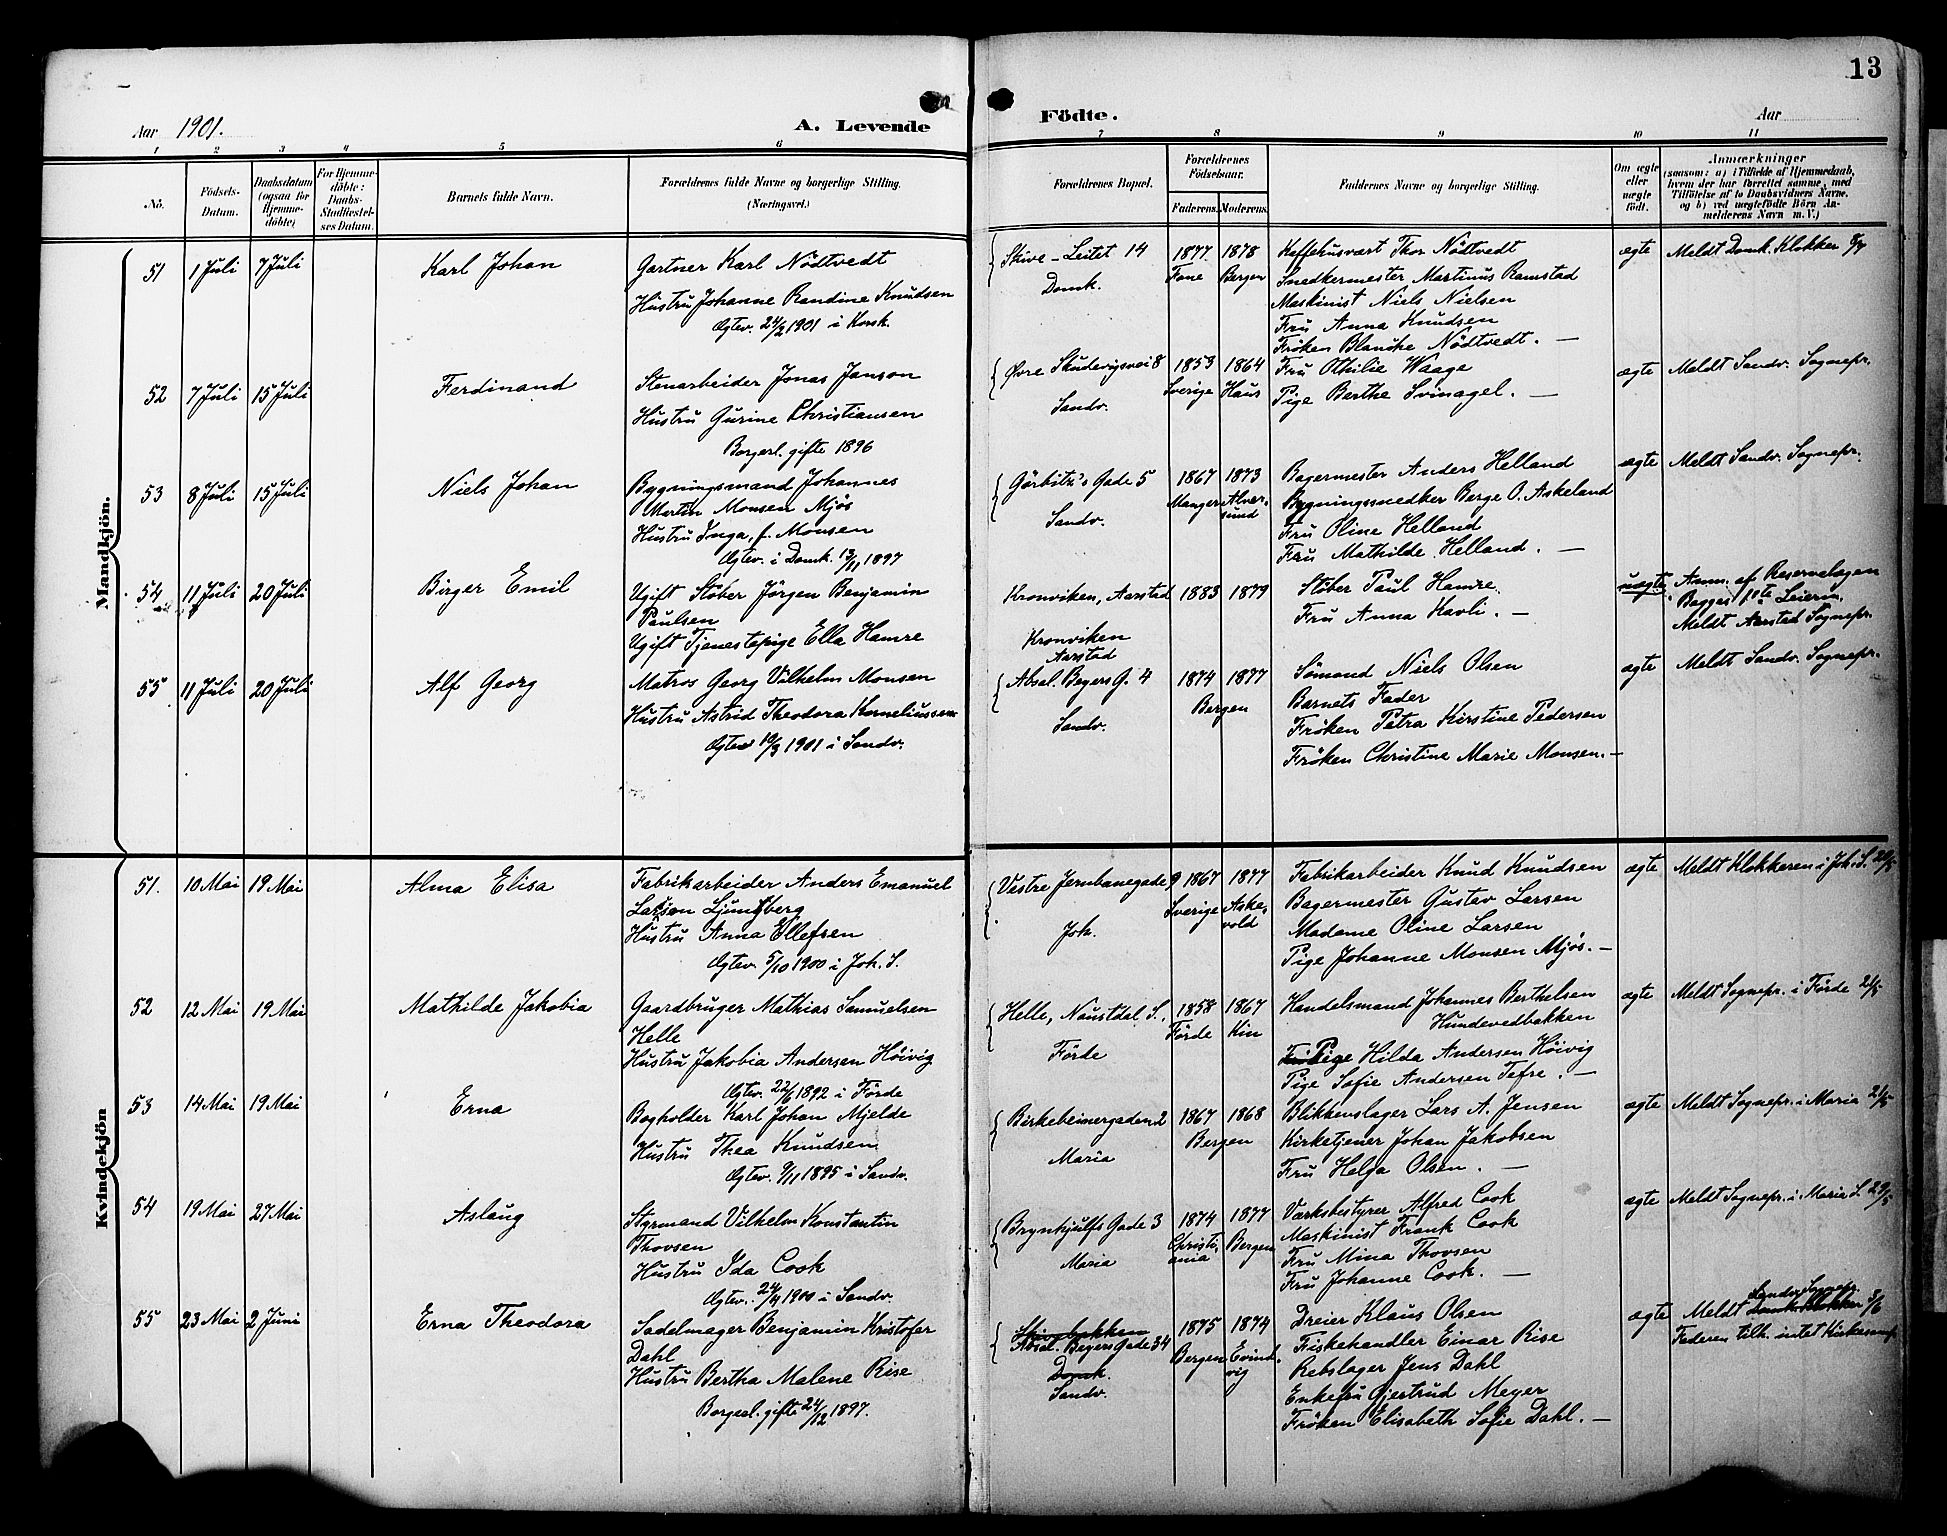 13
Aar 1901.
A. Levende
Födte.
Aar
1 2 3 4 5 6 7 8 9 10 11
No.
Födsels-
Datum.
Daabsdatum
(ogsaa for
Hjemme-
döbte)
For Hjemme-
döbte:
Daabs-
Stadfæstel-
ses Datum.
Barnets fulde Navn.
Forældrenes fulde Navne og borgerlige Stilling.
(Næringsvei.)
Forældrenes Bopæl.
Forældrenes
Födselsaar.
Faderens. Moderens.
Faddernes Navne og borgerlige Stilling.
Om ægte
eller
uægte
födt.
Anmærkninger
(saasom: a) i Tilfælde af Hjemmedaab,
hvem der har forrettet samme, med
Tilföielse af to Daabsvidners Navne.
og b) ved uægtefödte Börn An-
melderens Navn m. V.)
Mandkjön.
51 1 Juli 7 Juli Karl Johan
Gartner Karl Nödtvedt
Hustru Johanne Randine Knudsen
Ægtev. 24/2 1901 i Korsk.
Skive-Leitet 14
Domk.
1877 1878
Fane Bergen
Kaffehusvært Thor Nödtvedt
Snedkermester Martinus Ramstad
Maskinist Niels Nielsen
Fru Anna Knudsen
Fröken Blanche Nödtvedt. —
ægte
Meldt Domk. Klokker 8/7
52 7 Juli 15 Juli Ferdinand
Stenarbeider Jonas Janson
Hustru Gurine Christiansen
Borgerl. gifte 1896
Øvre Skudevigsvei 8
Sandv.
1853 1864
Sverige Haus
Fru Othilie Waage
Pige Berthe Svinagel. —
ægte
Meldt Sandv. Sognepr.
53 8 Juli 15 Juli Niels Johan
Bygningsmand Johannes
Martin Monsen Mjös
Hustru Inga, f. Monsen
Ægtev. i Domk. 13/11 1897
Görbitz's Gade 5
Sandv.
1867 1873
Manger Alver-
sund
Bagermester Anders Helland
Bygningssnedker Berge O. Askeland
Fru Oline Helland
Fru Mathilde Helland. —
ægte
Meldt Sandv. Sognepr.
54 11 Juli 20 Juli Birger Emil
Ugift Stöber Jörgen Benjamin
Paulsen
Ugift Tjenestepige Ella Hamre
Kronviken, Aarstad
Kronviken
Aarstad
1883 1879
Stöber Paul Hamre
Fru Anna Havli. —
uægte
Anm. af Reservelægen
Bagges 1ste Leierm.
Meldt Aarstad Sognepr.
55 11 Juli 20 Juli Alf Georg
Matros Georg Vilhelm Monsen
Hustru Astrid Theodora Korneliussen
Ægtev 10/3 1901 i Sandv.
Absal. Beyers G. 4
Sandv.
1874 1877
Bergen
Sömand Niels Olsen
Barnets Fader
Fröken Petra Kirstine Pedersen
Fröken Christine Marie Monsen. —
ægte
Meldt Sandv. Sognepr.
Kvindekjön
51. 10 Mai 19 Mai Alma Elisa
Fabrikarbeider Anders Emanuel
Larson Ljungberg
Hustru Anna Ellefsen
Ægtev. 5/10 1900 i Joh. S.
Vestre Jernbanegade 9
Joh.
1867 1877
Sverige Aske-
vold
Fabrikarbeider Knud Knudsen
Bagermester Gustav Larsen
Madame Oline Larsen
Pige Johanne Monsen Mjös. —
ægte
Meldt Klokkeren i Joh. S. 20/5
52 12 Mai 19 Mai Mathilde Jakobia
Gaardbruger Mathias Samuelsen
Helle
Hustru Jakobia Andersen Höivig
Ægtev. 22/6 1892 i Förde
Helle, Naustdal S.,
Förde
1858 1867
Förde Kin
Handelsmand Johannes Berthelsen
Hundevedbakken
Pige Hilda Andersen Höivig
Pige Sofie Andersen Tefre. —
ægte
Meldt Sognepr. i Förde 21/5
53 14 Mai 19 Mai Erna
Bogholder Karl Johan Mjelde
Hustru Thea Knudsen
Ægtev. 9/11 1895 i Sandv.
Birkebeinergaden 2
Maria
1867 1868
Bergen
Blikkenslager Lars A. Jensen
Kirketjener Johan Jakobsen
Fru Helga Olsen. —
ægte
Meldt Sognepr. i Maria 21/5
54 19 Mai 27 Mai Aslaug
Styrmand Vilhelm Konstantin
Thovsen
Hustru Ida Cook
Ægtev. 24/4 1900 i Sandv.
Brynhjulfs Gade 3
Maria
1874 1877
Christi-
ania Bergen
Værksbestyrer Alfred Cook
Maskinist Frank Cook
Fru Mina Thovsen
Fru Johanne Cook. —
ægte
Meldt Sognepr. i Maria S. 29/5
55 23 Mai 2 Juni Erna Theodora
Sadelmager Benjamin Kristofer
Dahl
Hustru Bertha Malene Rise
Borgerl. gifte 24/12 1897.
Skivebakken
Absal. Beyers Gade 34
Domk.
Sandv.
1875 1874
Bergen Evind-
vig
Dreier Klaus Olsen
Fiskehandler Einar Rise
Rebslager Jens Dahl
Enkefru Gjertrud Meyer
Fröken Elisabeth Sofie Dahl. —
ægte
Sandv. Sognepr.
Meldt Domk. Klokker 3/6
Faderen tilh. intet Kirkesamf.